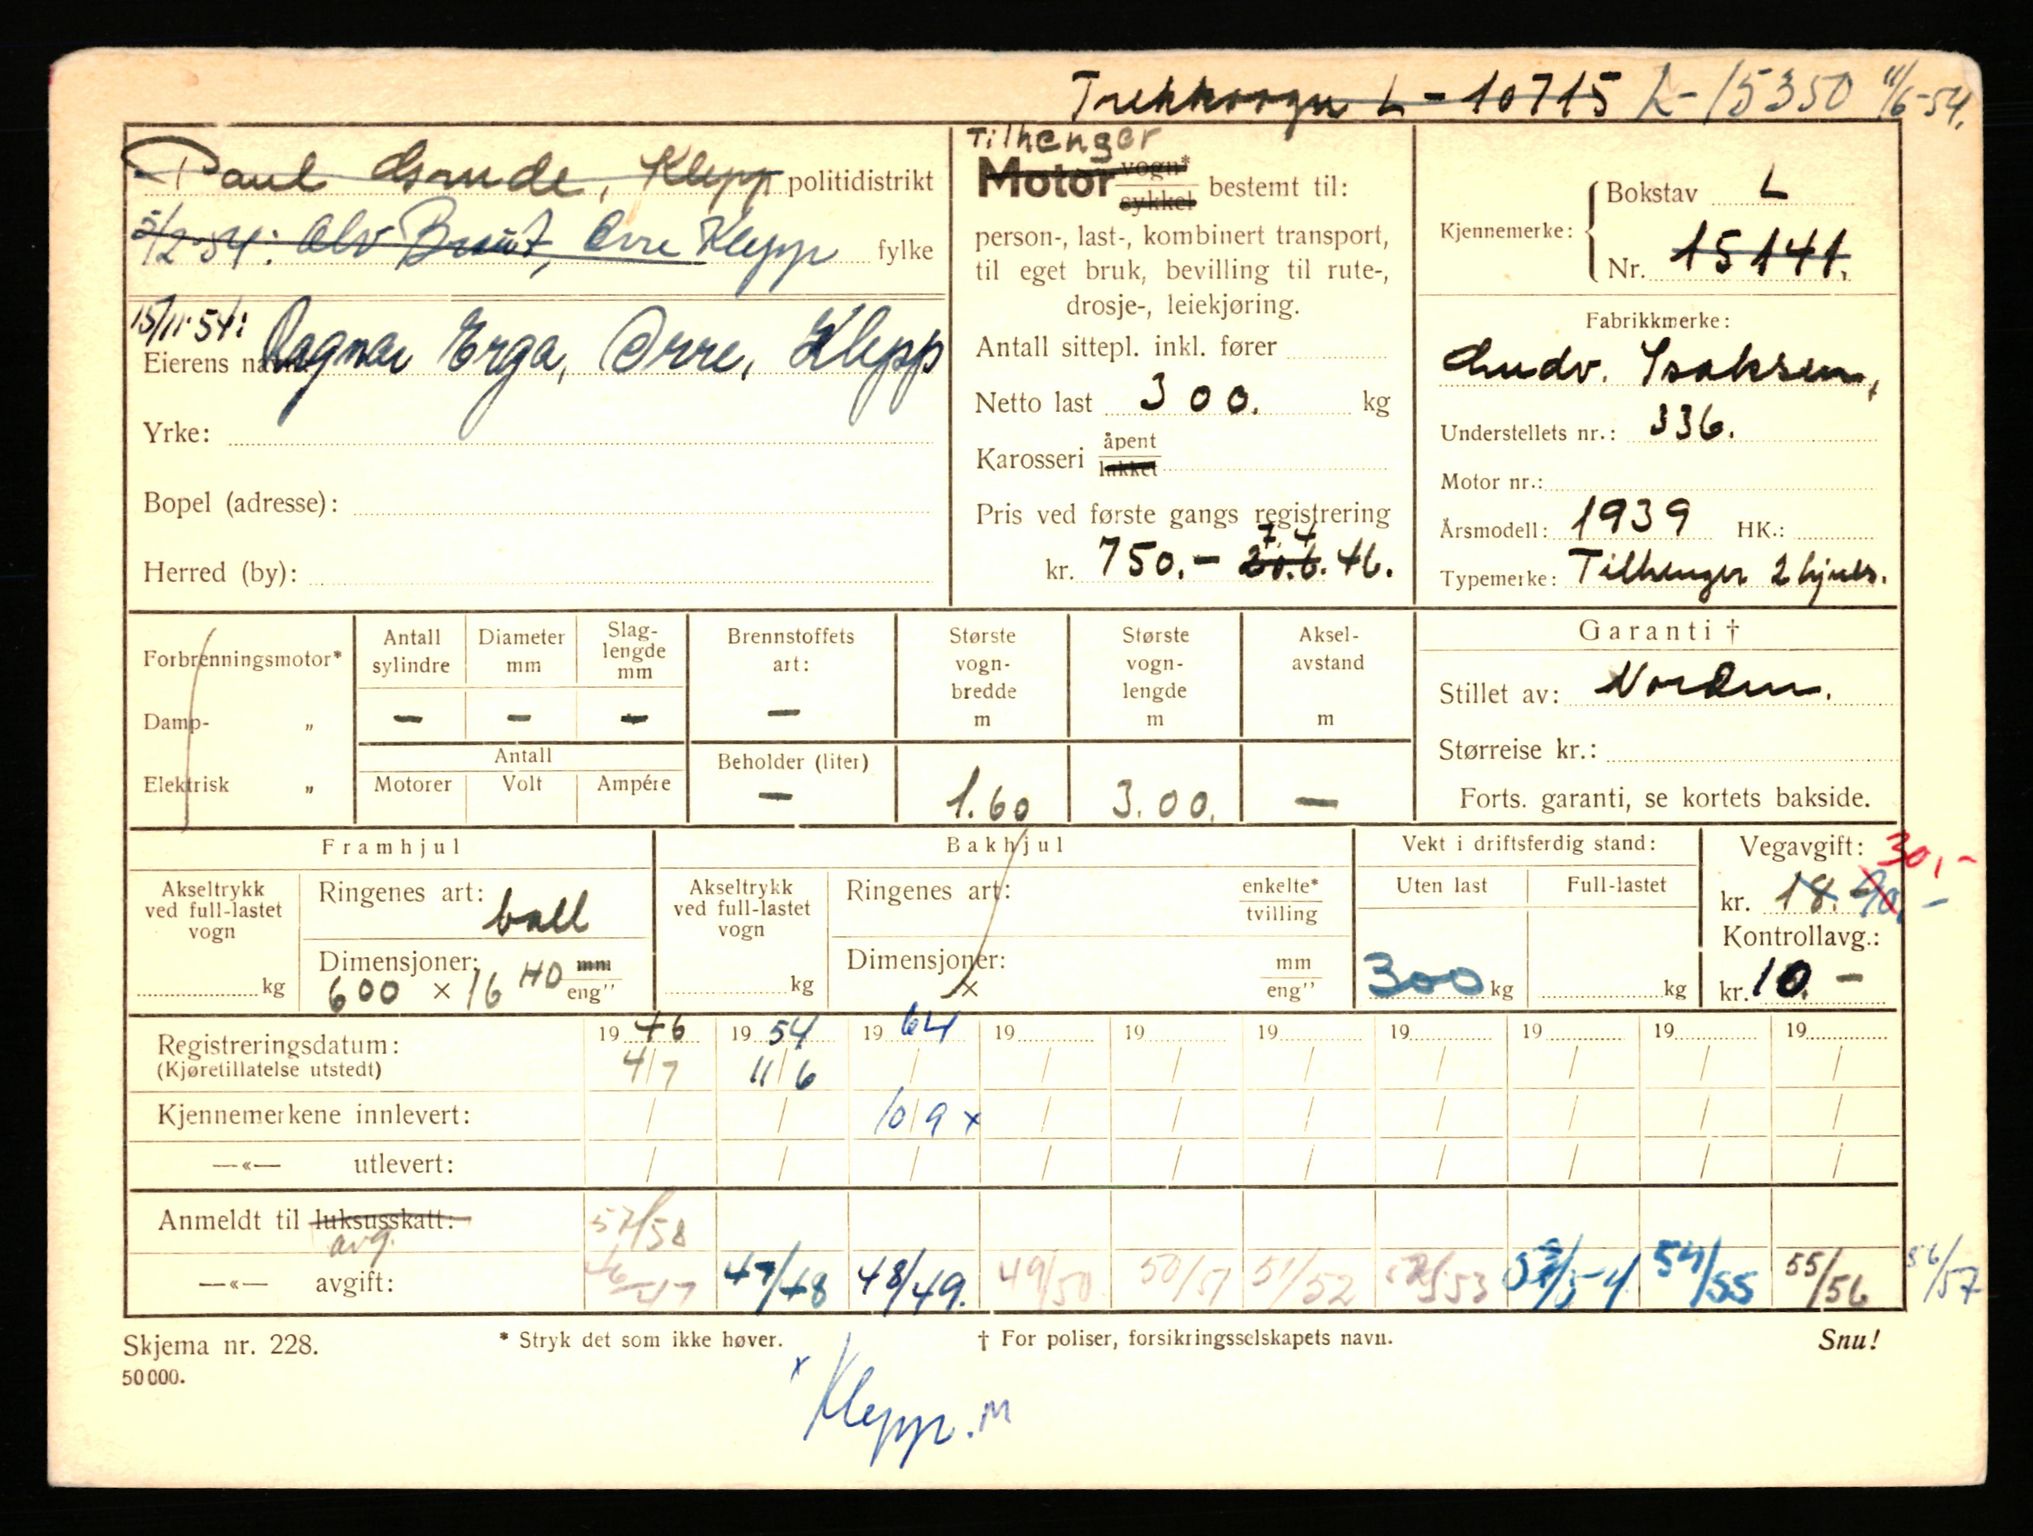 Trekkvogn L - 10715 L-15350 11/6-54.
Paul Grude, Klepp politidistrikt
5/2-54: Alv Braut, Orre Klepp fylke
15/11-54: Ragnar Erga, Orre, Klepp
Eierens navn
Yrke:
Bopel (adresse):
Herred (by):
Tilhenger
Motor vogn* sykkel bestemt til:
person-, last-, kombinert transport,
til eget bruk, bevilling til rute-,
drosje-, leiekjøring.
Antall sittepl. inkl. fører
Netto last 300. kg
Karosseri åpent lukket
Pris ved første gangs registrering
7. 4
kr. 750.- 20.6. 46.
Kjennemerke: Bokstav L
Nr. 15141.
Fabrikkmerke:
Ludv. Isaksen,
Understellets nr.: 336.
Motor nr.:
Årsmodell: 1939 HK.:
Typemerke: Tilhenger 2 hjuls.
Forbrenningsmotor*
Damp- „
Elektrisk „
Antall sylindre
Diameter mm
Slag-lengde mm
— — —
Antall
Motorer Volt Ampére
Brennstoffets art:
—
Beholder (liter)
—
Største vogn-bredde m
1.60
Største vogn-lengde m
3.00.
Aksel-avstand m
—
Garanti †
Stillet av: Norden.
Størreise kr.:
Forts. garanti, se kortets bakside.
Framhjul
Akseltrykk ved full-lastet vogn
kg
Ringenes art: ball
Dimensjoner: mm
600 × 16 HD eng”
Bakhjul
Akseltrykk ved full-lastet vogn
kg
Ringenes art: enkelte* tvilling
Dimensjoner: mm
× eng”
Vekt i driftsferdig stand:
Uten last Full-lastet
300 kg kg
Vegavgift: 30,-
kr. 18.
Kontrollavg.:
kr. 10.-
Registreringsdatum: 1946 1954 1964 19 19 19 19 19 19 19
(Kjøretillatelse utstedt) 4/7 11/6 / / / / / / / /
Kjennemerkene innlevert: / / 10/9 x / / / / / / /
—«— utlevert: / / / / / / / / / /
Anmeldt til luksusskatt: 57/58
avg.
—«— avgift: 46-47 47/48 48/49. 49/50 50/51 51/52 52/53 53/54 54/55 55/56 56/57
Skjema nr. 228. * Stryk det som ikke høver. † For poliser, forsikringsselskapets navn. Snu!
50 000.
x Klepp. M